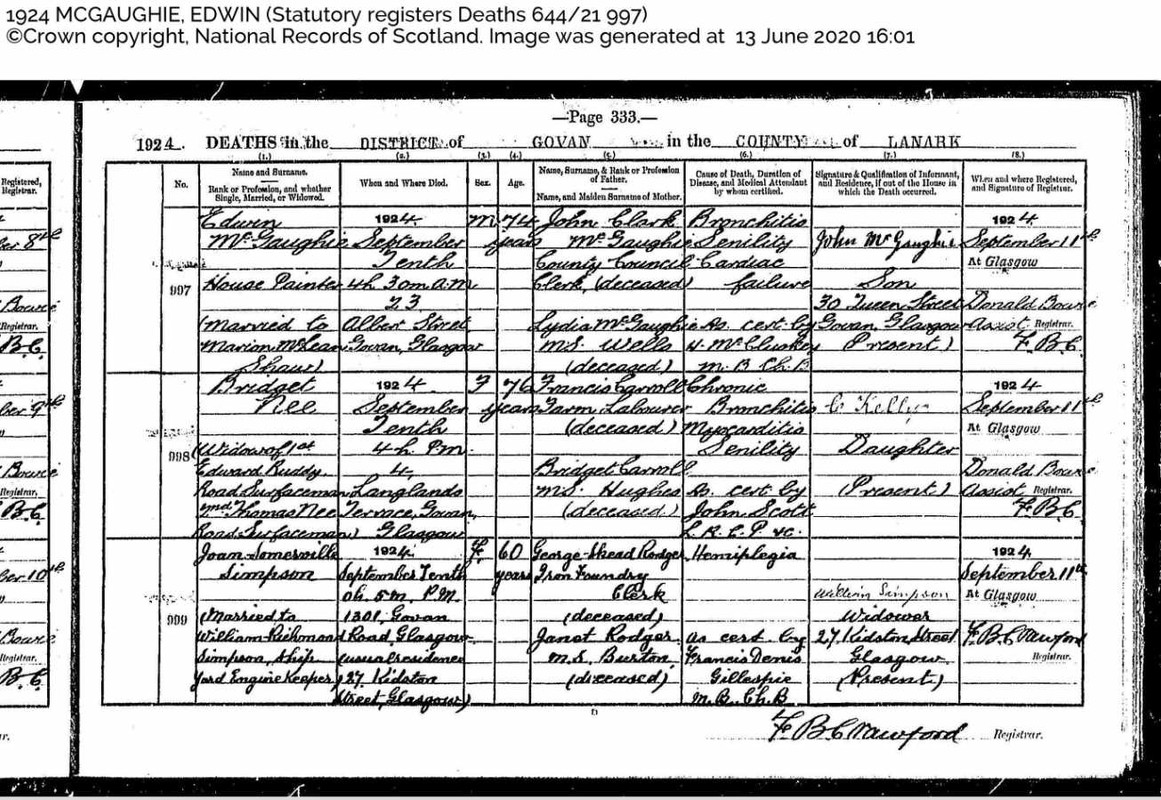 1924 MCGAUGHIE, EDWIN (Statutory registers Deaths 644/21 997)
©Crown copyright, National Records of Scotland. Image was generated at 13 June 2020 16:01
—Page 333.—
1924. DEATHS in the DISTRICT of GOVAN in the COUNTY of LANARK
(1.) (2.) (3.) (4.) (5.) (6.) (7.) (8.)
No.
Name and Surname.
Rank or Profession, and whether
Single, Married, or Widowed.
When and Where Died.
Sex.
Age.
Name, Surname, & Rank or Profession
of Father.
Name, and Maiden Surname of Mother.
Cause of Death, Duration of
Disease, and Medical Attendant
by whom certified.
Signature & Qualification of Informant,
and Residence, if out of the House in
which the Death occurred.
When and where Registered,
and Signature of Registrar.
997
Edwin
McGaughie
House Painter
(Married to
Marion McLean
Shaw)
1924
September
Tenth
4h. 30m. A.M.
23
Albert Street
Govan, Glasgow
M
74
years
John Clark
McGaughie
County Council
Clerk (deceased)
Lydia McGaughie
M.S. Wells
(deceased)
Bronchitis
Senility
Cardiac
failure
As cert by
McCluskey
M.B. Ch.B
John McGaughie
Son
30 Queen Street
Govan, Glasgow
(Present)
1924
September 11th
At Glasgow
Donald Bowie
Assist. Registrar.
F.B.C.
998
Bridget
Nee
(Widow of 1st
Edward Ruddy
Road Surfaceman
2nd Thomas Nee
Road Surfaceman)
1924
September
Tenth
4h. P.M.
4
Langlands
Terrace, Govan,
Glasgow
F
76
years
Francis Carroll
Farm Labourer
(deceased)
Bridget Carroll
M.S. Hughes
(deceased)
Chronic
Bronchitis
Myocarditis
Senility
As cert by
John Scott
L.R.C.P. &c.
C. Kelly
Daughter
(Present)
1924
September 11th
At Glasgow
Donald Bowie
Assist. Registrar.
F.B.C.
999
Joan Somerville
Simpson
(Married to
William Richmond
Simpson, Ship
Yard Engine Keeper)
1924
September Tenth
0h. 5m. P.M.
1301, Govan
Road, Glasgow
(usual residence
27 Kidston
Street, Glasgow)
F.
60
years
George Skead Rodger
Iron Foundry
Clerk
(deceased)
Janet Rodger
M.S. Burton
(deceased)
Hemiplegia
as cert by
Francis Denis
Gillespie
M.B. Ch.B
William Simpson
Widower
27, Kidston Street
Glasgow
(Present)
1924
September 11th
At Glasgow
F.B. Crawford
Registrar.
F B Crawford Registrar.